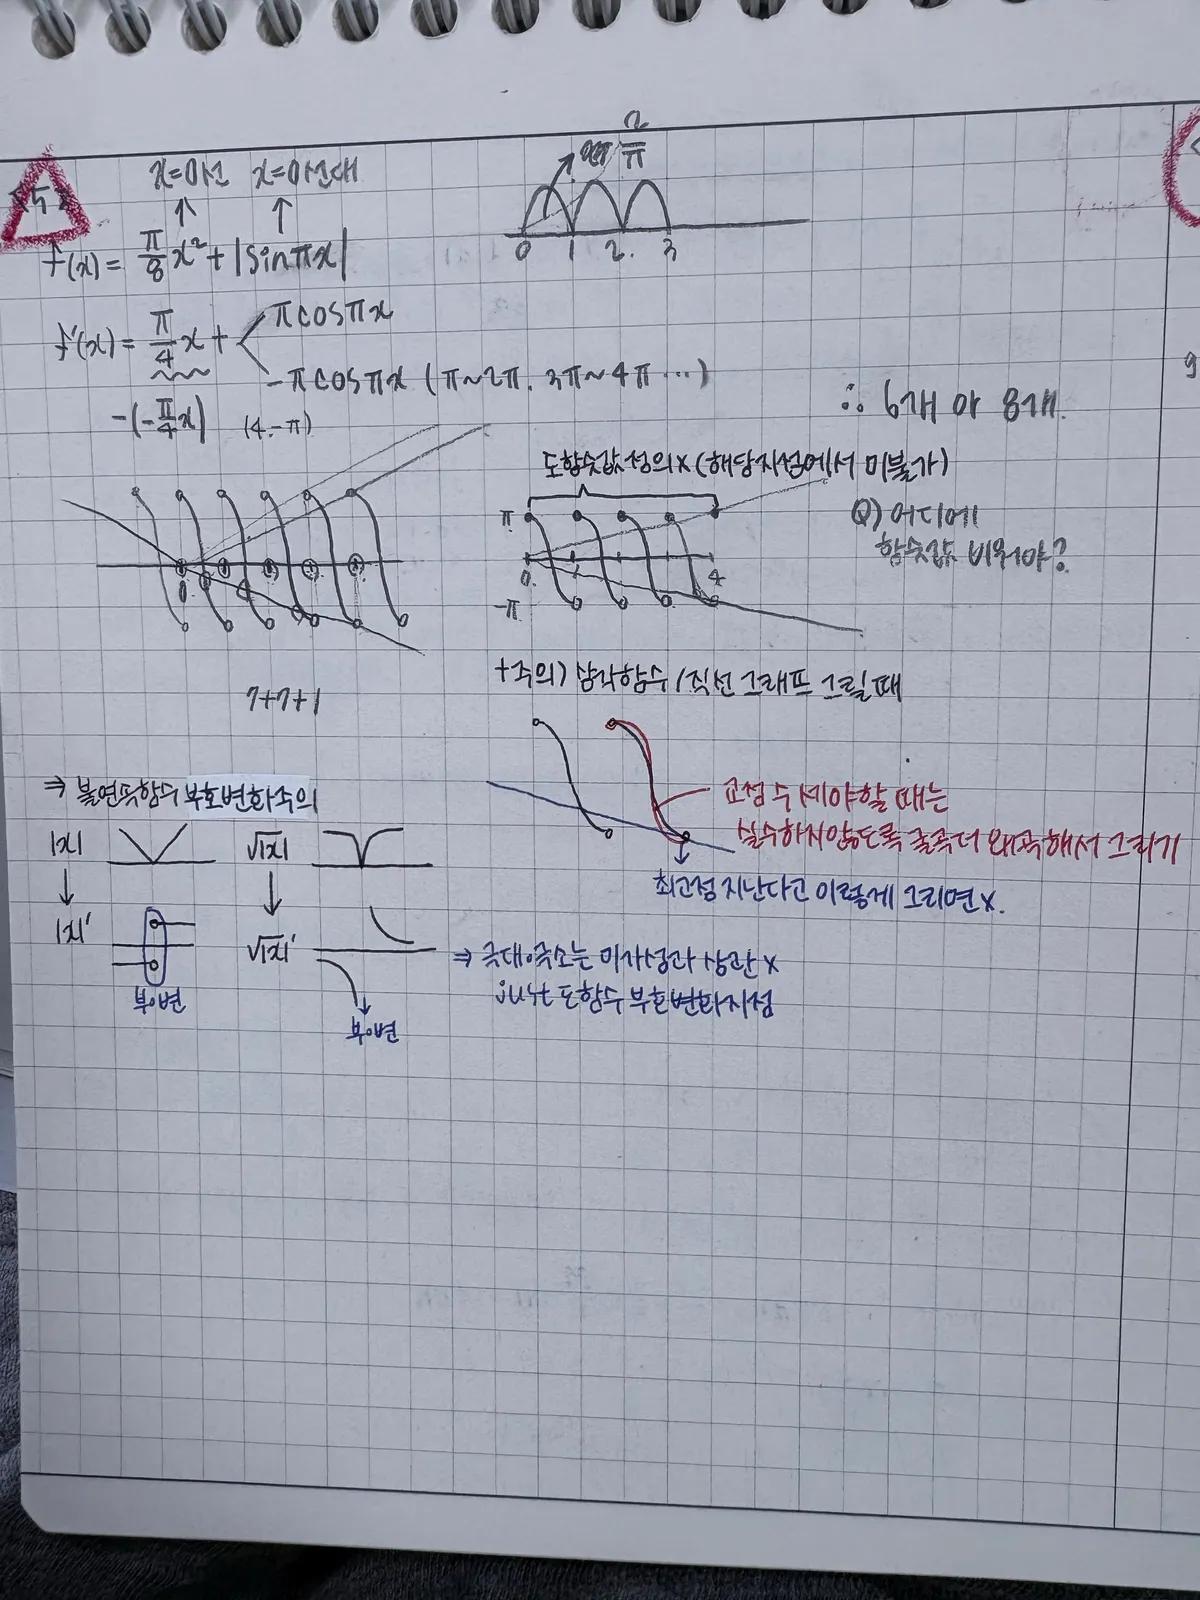 5
x=0선 x=0선대
f(x) = π/8 x² + |sinπx|
2/π
0 1 2. 3
f'(x) = π/4 x + < πcosπx
-πcosπx (π~2π. 3π~4π ...)
-(-π/4 x) (4.-π)
∴ 6개 아 8개.
도함숫값 정의x (해당지점에서 미불가)
Q) 어디에
함숫값 비워야?
π
0. 4
-π
0
7+7+1
+주의) 삼각함수/직선 그래프 그릴때
교점 수 세야할 때는
실수하지않도록 굴곡더 왜곡해서 그리기
최고점 지난다고 이렇게 그리면 x.
⇒ 불연속함수 부호변화주의
|x| √|x|
|x|' √|x|'
부변
부변
⇒ 극대·극소는 미가성과 상관 x
just 도함수 부호변화지점
9